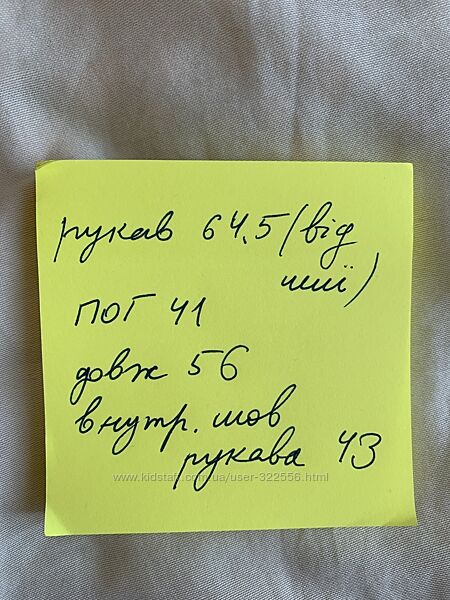 рукав 64,5 (від
шиї)
ПОГ 41
довж 56
внутр. шов
рукава 43
www.kidstaff.com.ua/user-322556.html